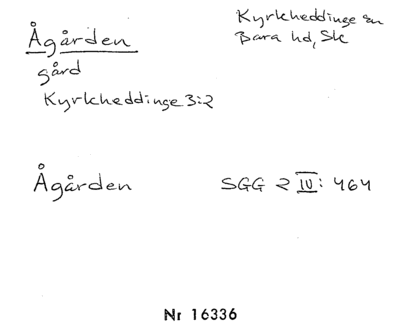 Ågården
Kyrkheddinge sn
Bara hd, Sk
gård
Kyrkheddinge 3:2
Ågården
SGG 2 IV: 464
Nr 16336